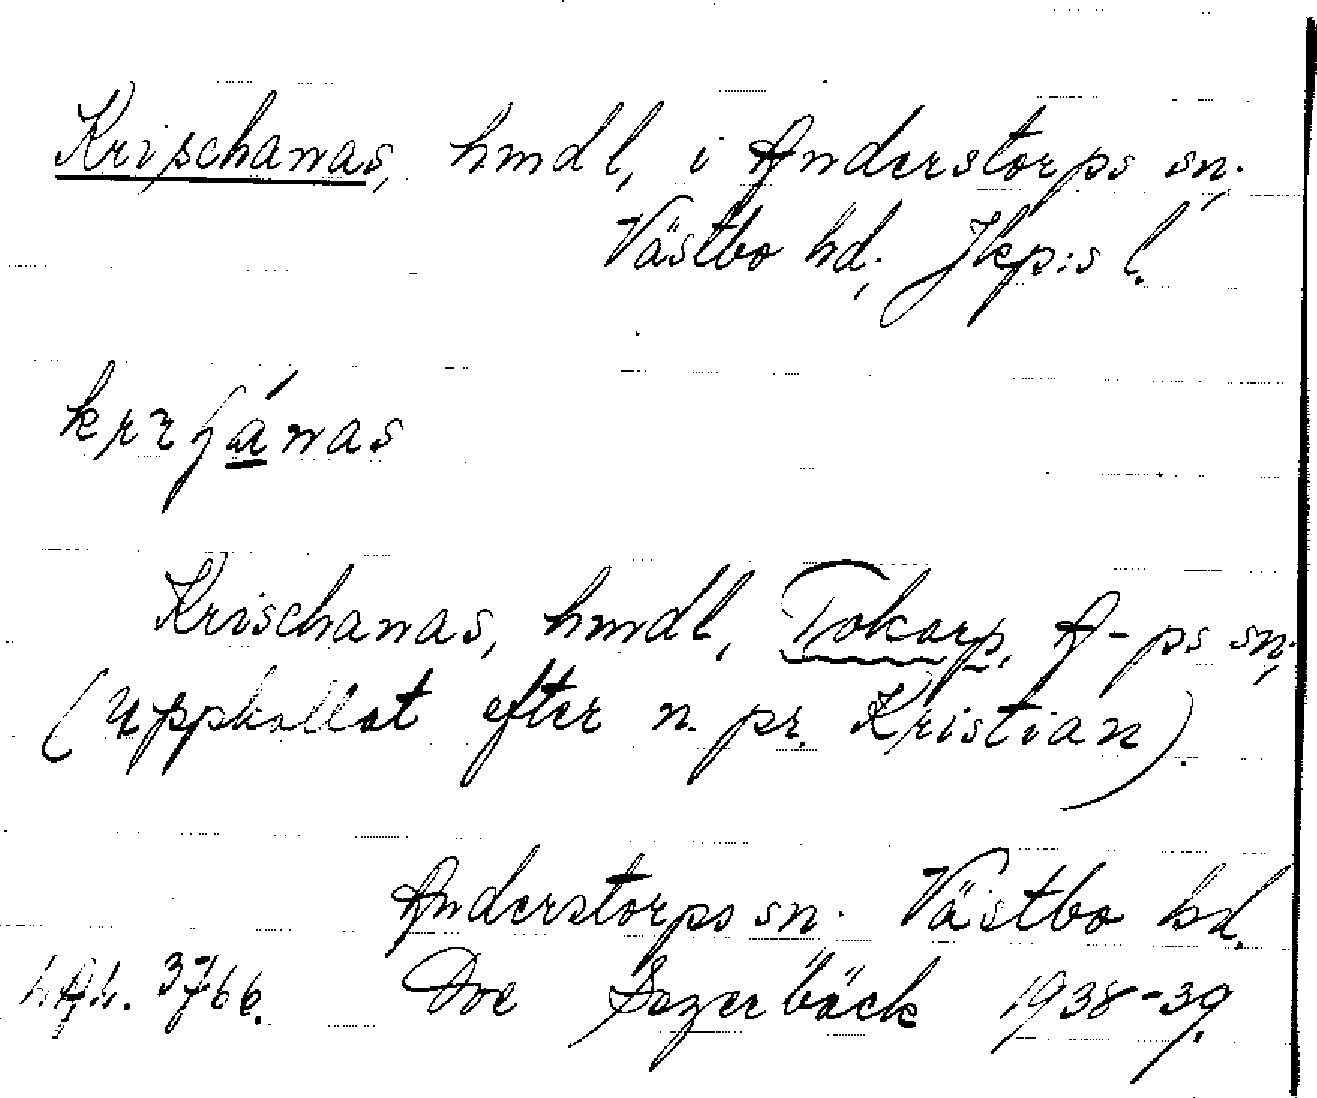 Krischanas, hmdl, i Anderstorps sn.,
Västbo hd., Jkp:s l.
Krischanas, hmdl, Tokarp, A-ps sn.,
(uppkallat efter n. pr. Kristian).
Anderstorps sn. Västbo hd.
3766. Ove Fagerbäck 1938-39.